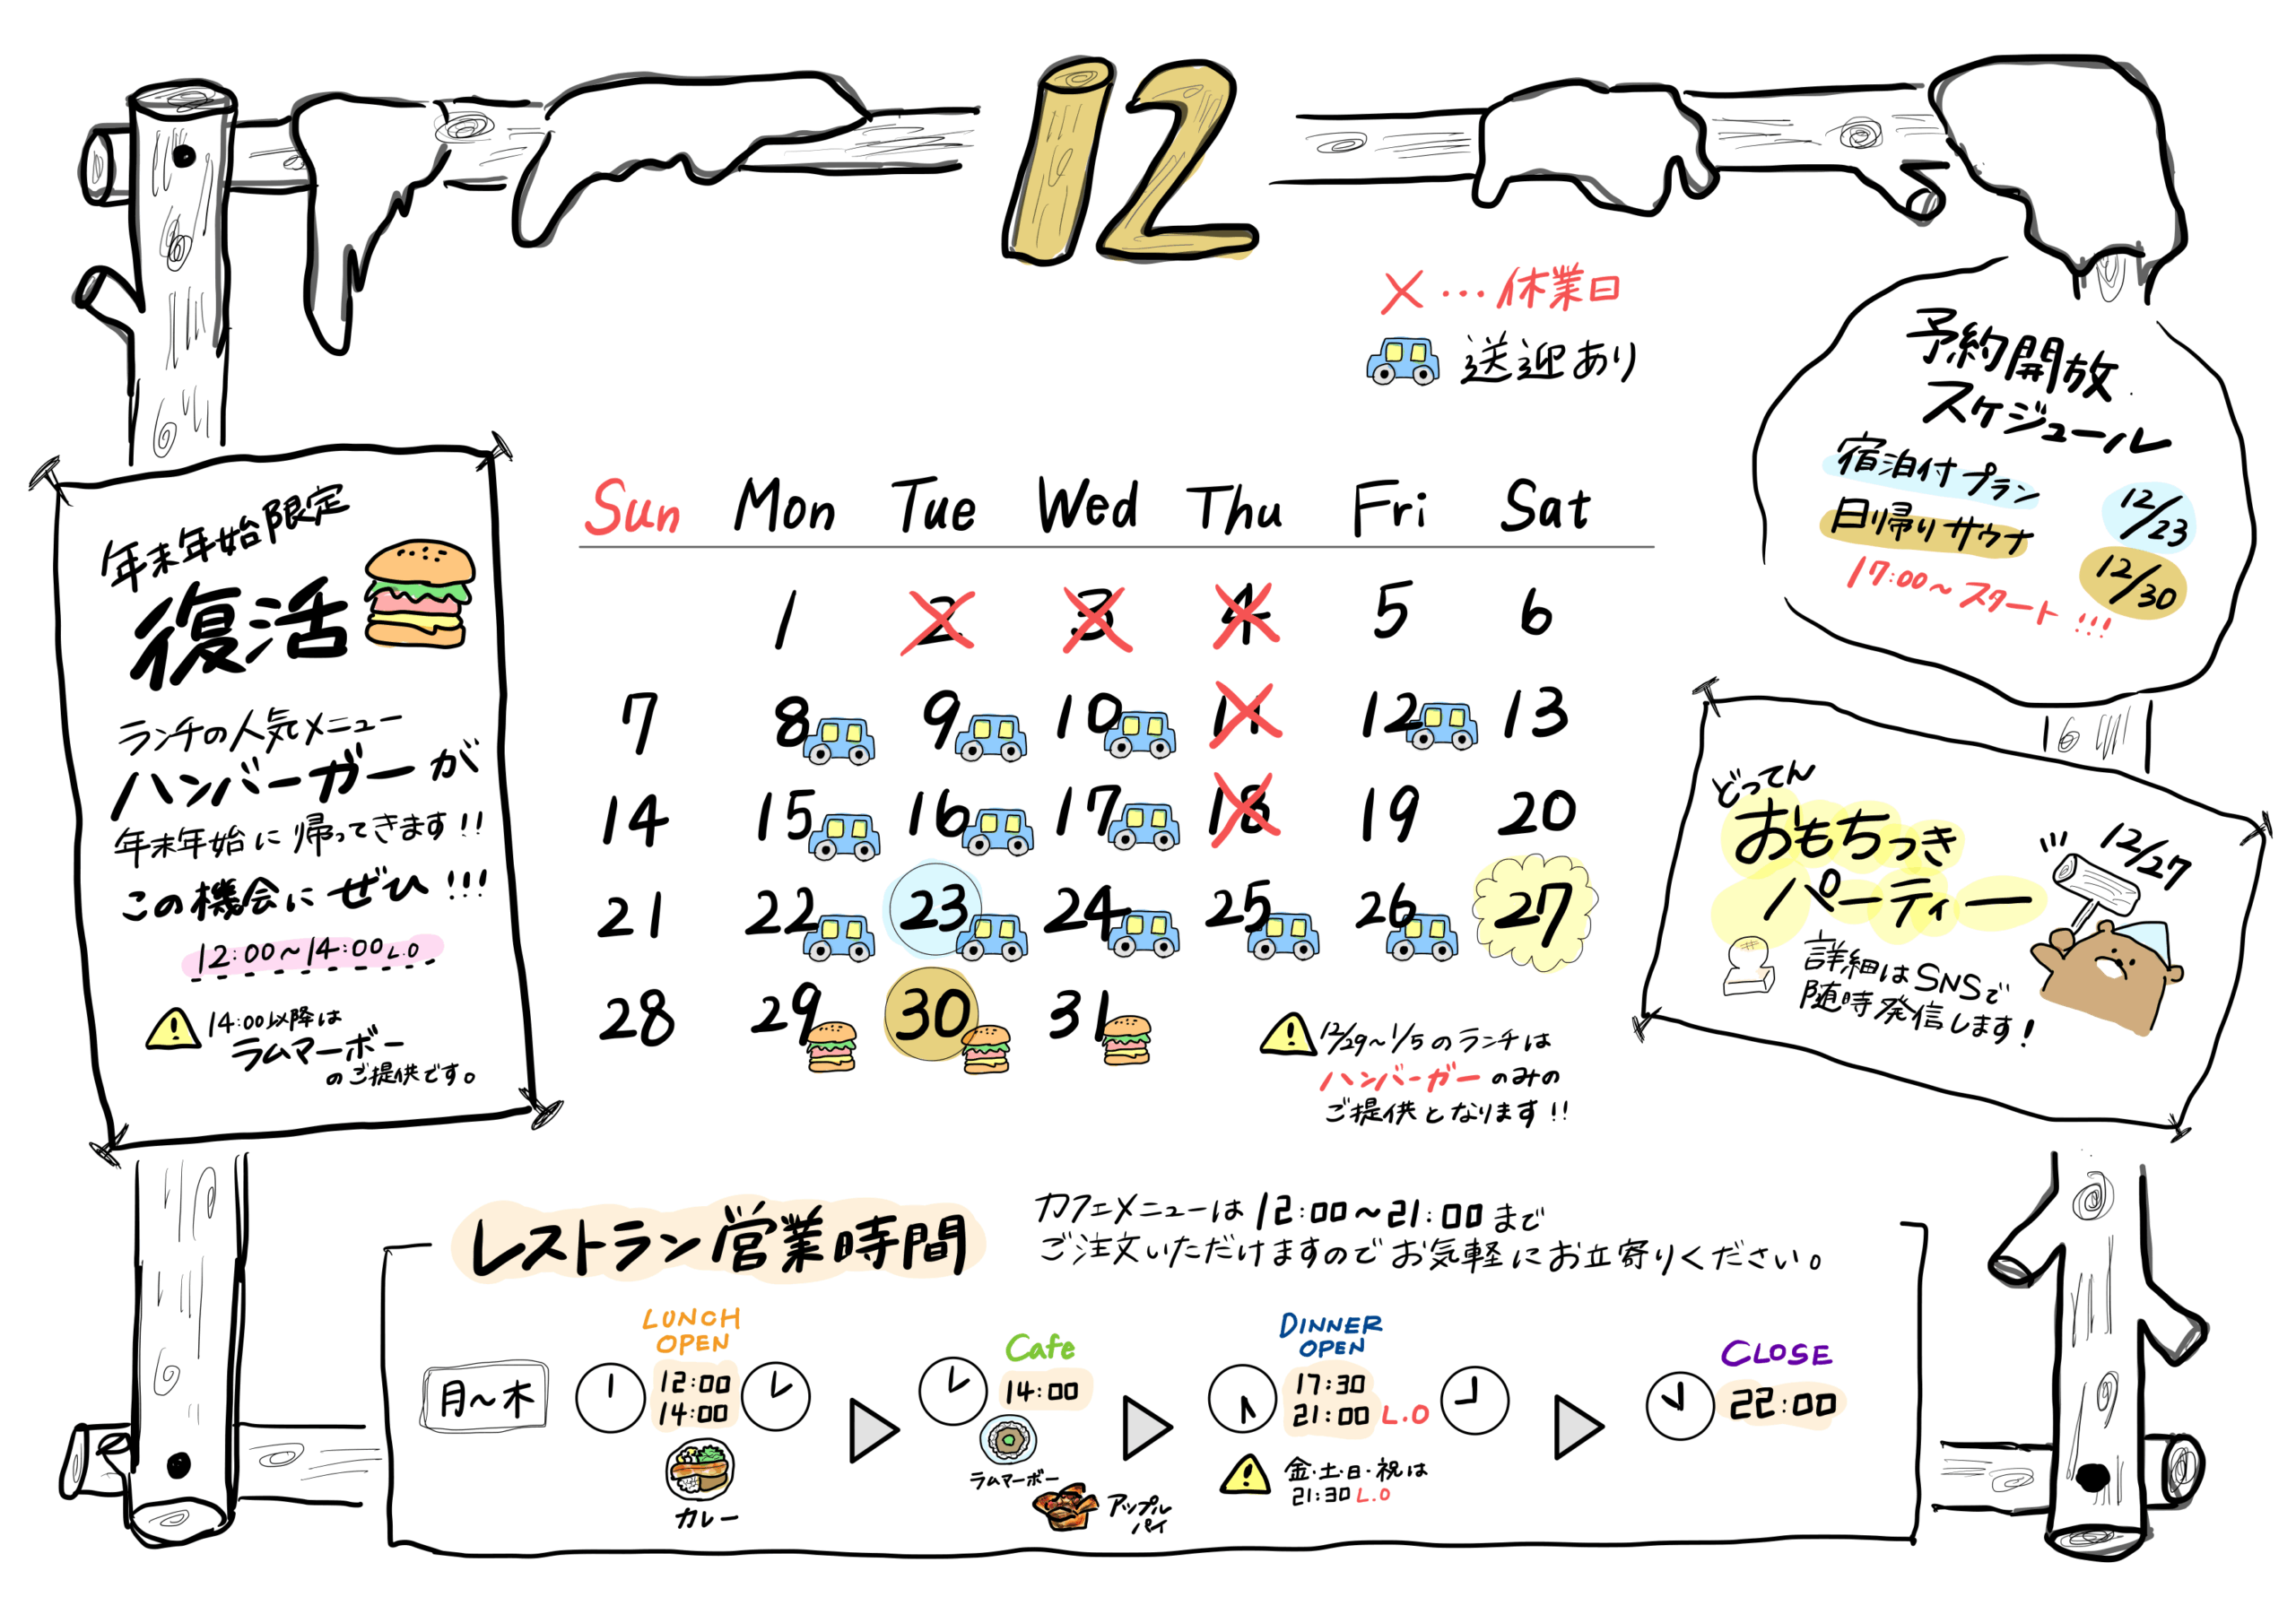 12
×…休業日
送迎あり
予約開放
スケジュール
宿泊付プラン 12/23
日帰りサウナ 12/30
17:00~スタート!!!
年末年始限定
復活
ランチの人気メニュー
ハンバーガーが
年末年始に帰ってきます!!
この機会にぜひ!!!
12:00~14:00 L.O
14:00以降は
ラムマーボー
のご提供です。
Sun Mon Tue Wed Thu Fri Sat
1 2 3 4 5 6
7 8 9 10 11 12 13
14 15 16 17 18 19 20
21 22 23 24 25 26 27
28 29 30 31
12/29~1/5のランチは
ハンバーガーのみの
ご提供となります!!
どってん
おもちつき
パーティー
12/27
詳細はSNSで
随時発信します!
レストラン営業時間
カフェメニューは12:00~21:00まで
ご注文いただけますのでお気軽にお立寄りください。
月~木
LUNCH
OPEN
12:00
14:00
カレー
Cafe
14:00
ラムマーボー
アップル
パイ
DINNER
OPEN
17:30
21:00 L.O
金・土・日・祝は
21:30 L.O
CLOSE
22:00